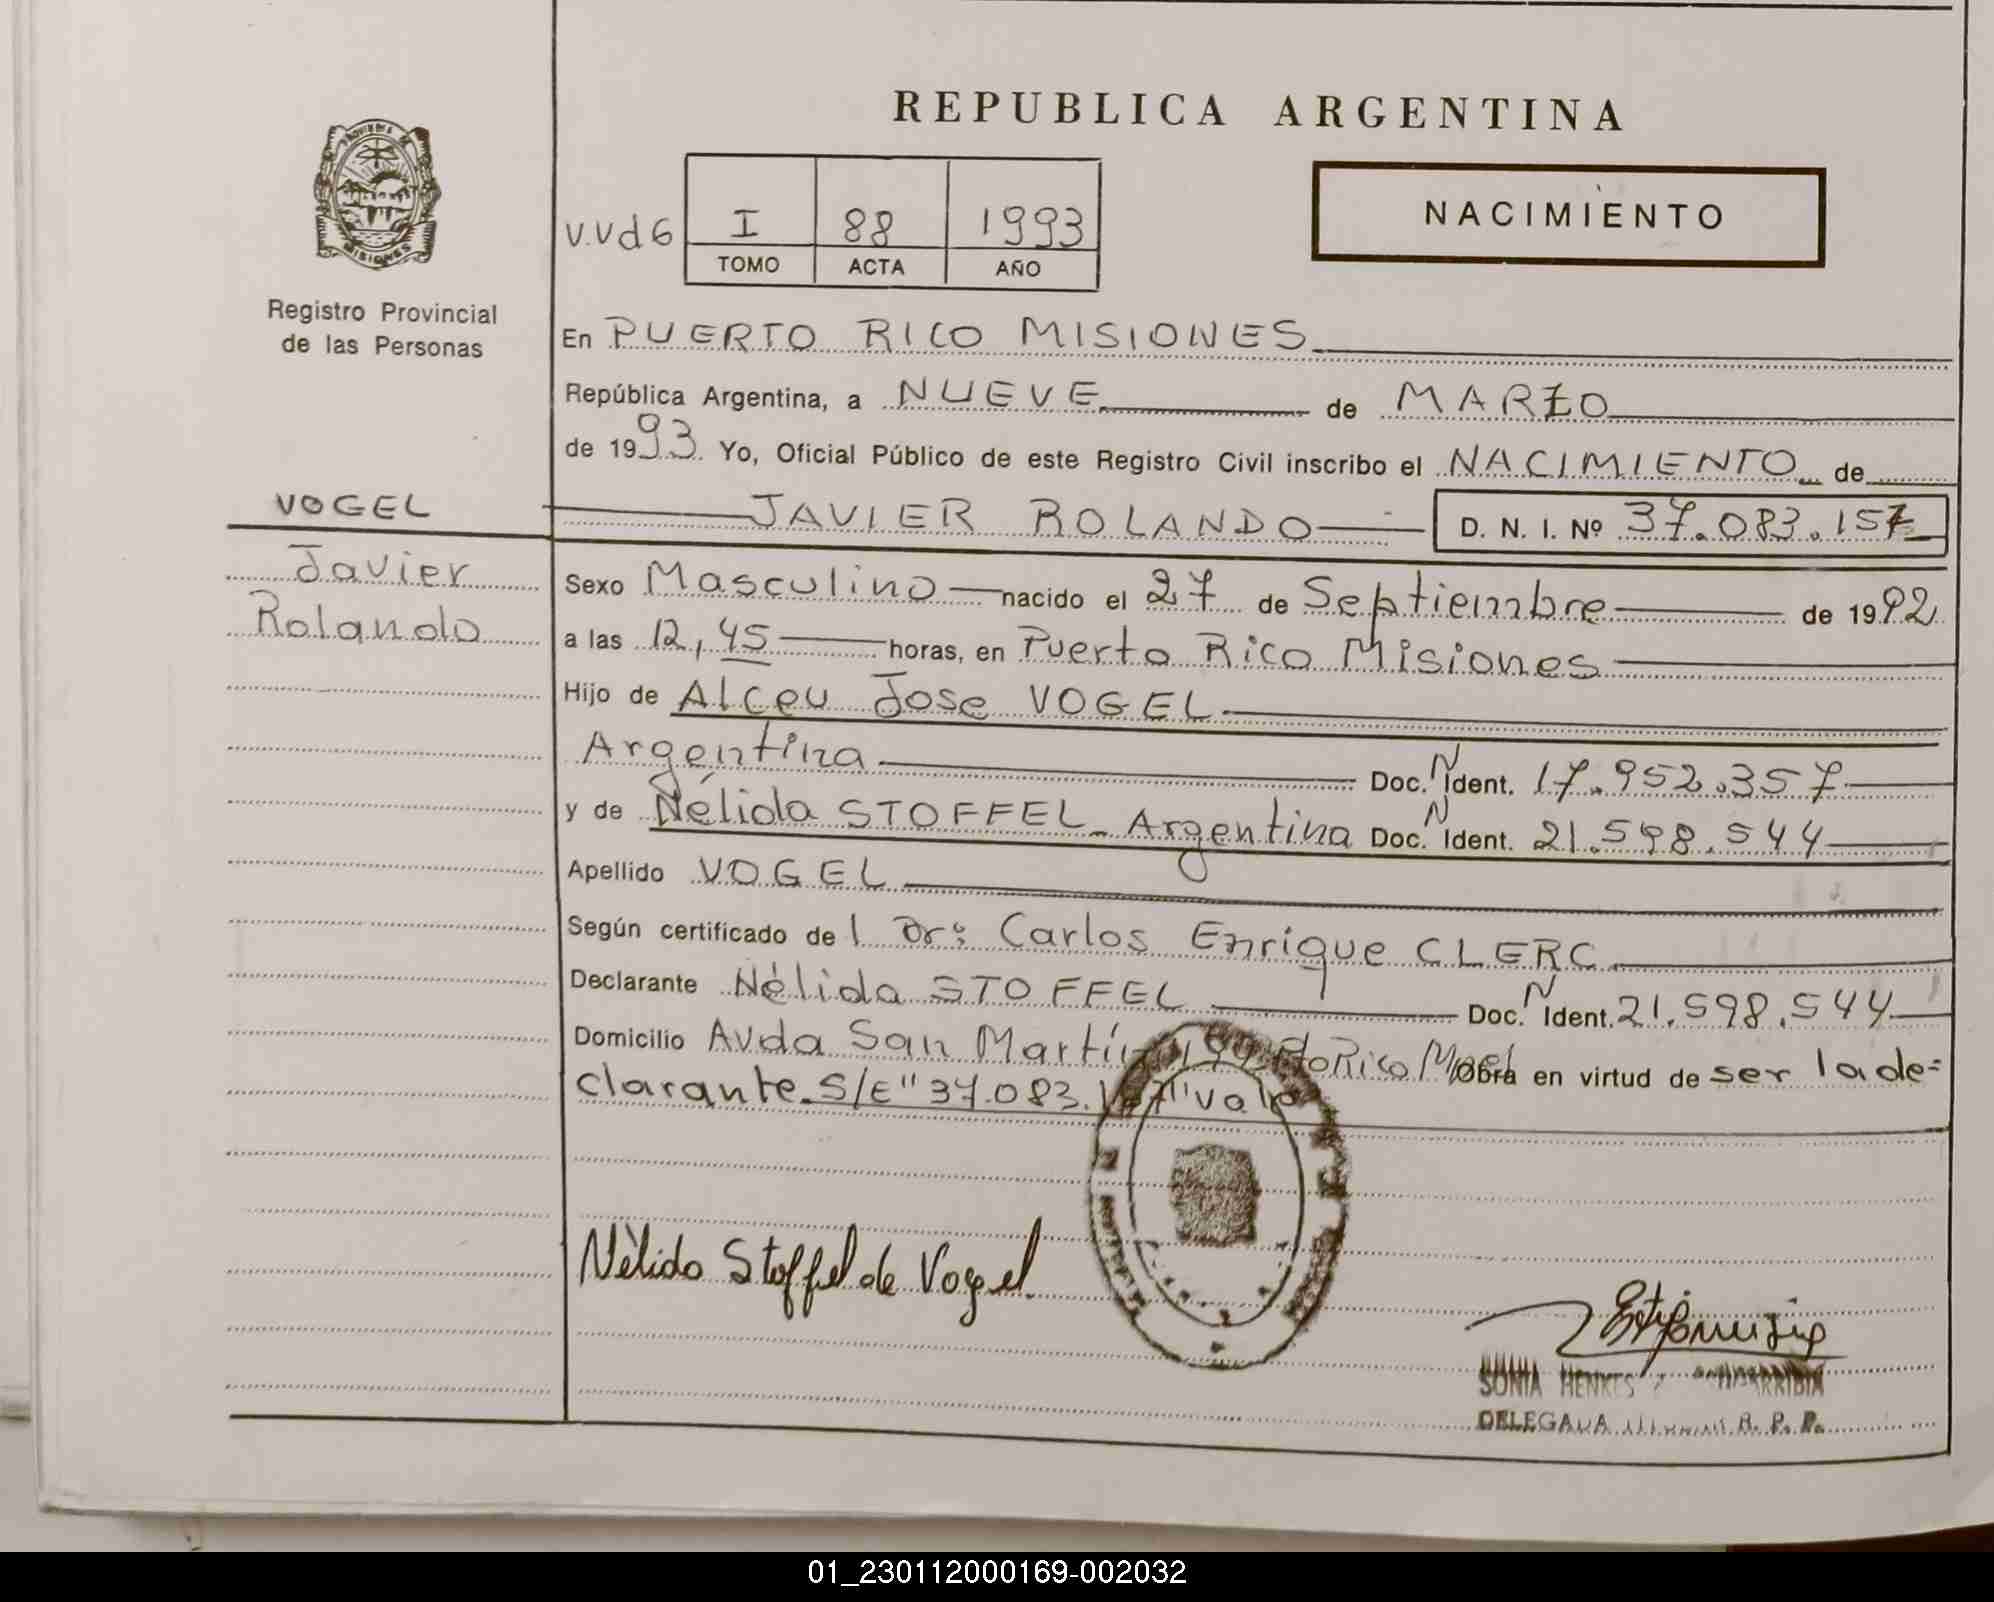 REPUBLICA ARGENTINA
PROVINCIA DE
MISIONES
Registro Provincial
de las Personas
V.V d 6 I 88 1993
TOMO ACTA AÑO
NACIMIENTO
En PUERTO RICO MISIONES
República Argentina, a NUEVE de MARZO
de 1993. Yo, Oficial Público de este Registro Civil inscribo el NACIMIENTO de
VOGEL JAVIER ROLANDO D. N. I. Nº 37.083.157
Javier
Rolando
Sexo Masculino nacido el 27 de Septiembre de 1992
a las 12,45 horas, en Puerto Rico Misiones
Hijo de Alceu Jose VOGEL
Argentina Doc. N Ident. 17.952.357
y de Nélida STOFFEL Argentina Doc. N Ident. 21.598.544
Apellido VOGEL
Según certificado de l Dr: Carlos Enrique CLERC
Declarante Nélida STOFFEL Doc. N Ident. 21.598.544
Domicilio Avda San Martín Pto Rico Mnes Obra en virtud de ser la de=
clarante. S/E" 37.083.157" vale
Nèlida Stoffel de Vogel
SONIA HENKES
DELEGADA R. P. P.
01_230112000169-002032